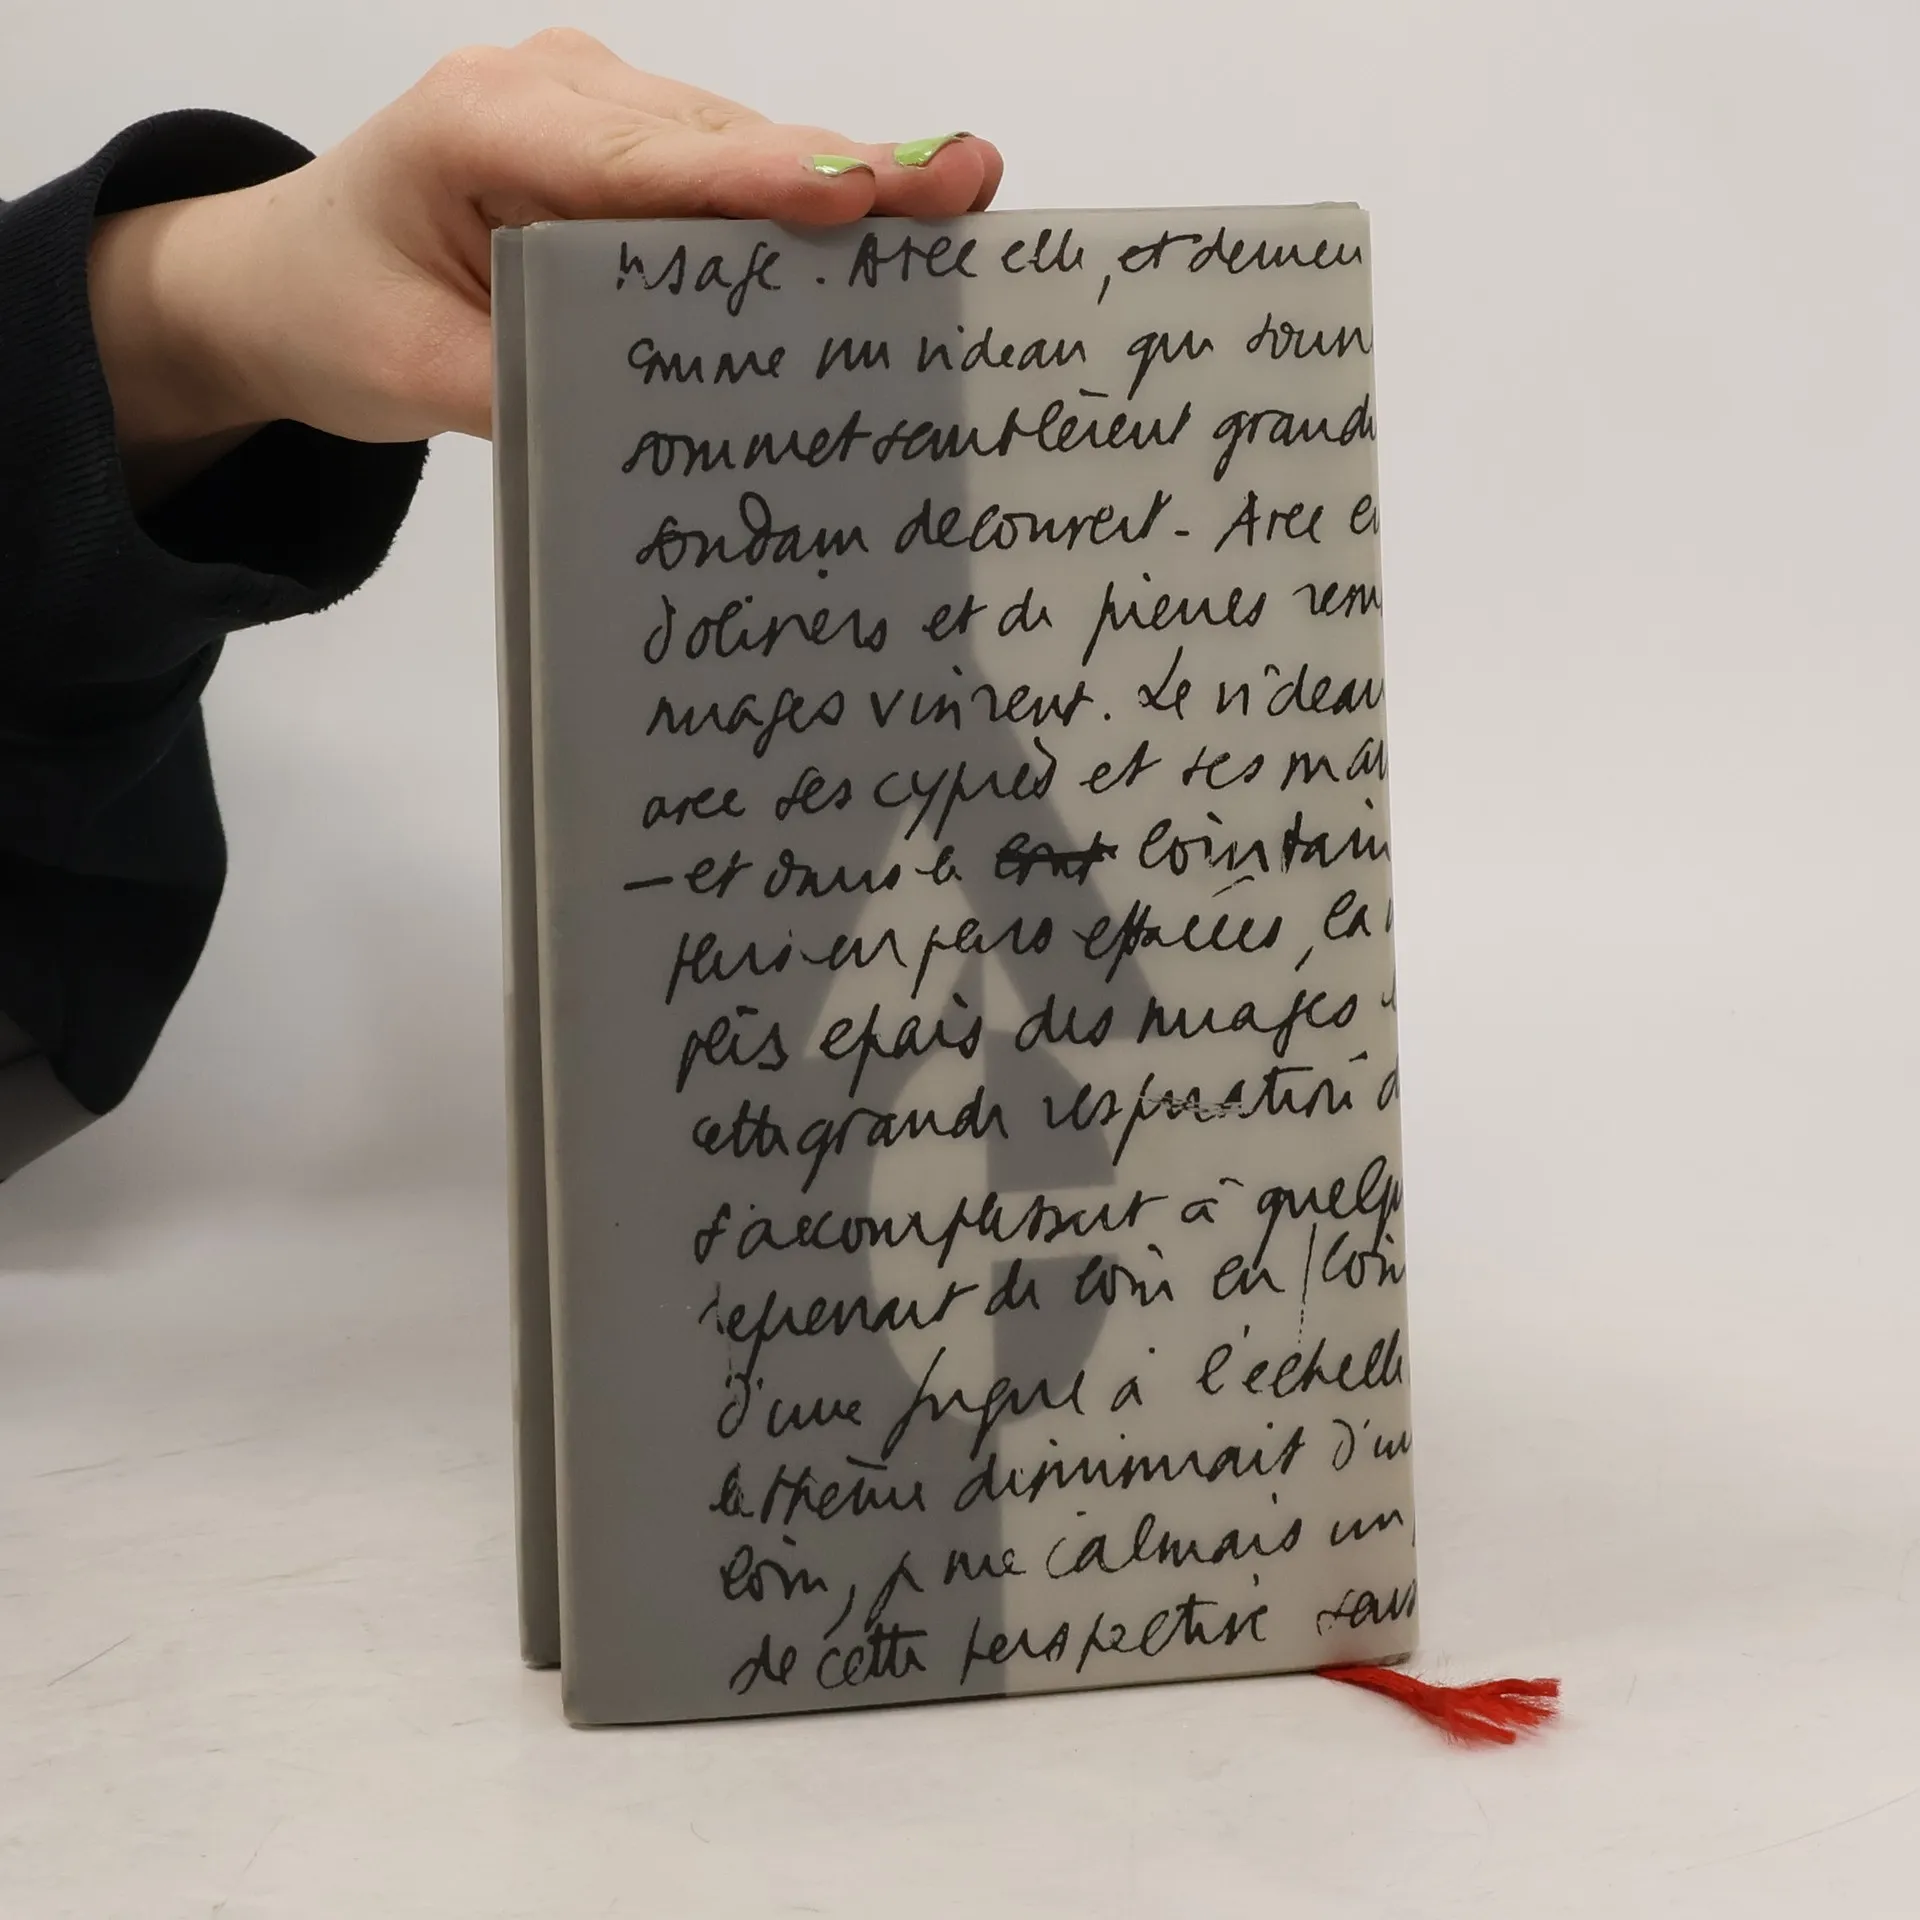 usage. Avec elle, et derrieu
comme un rideau qui s'ouvr
sommet semblèrent grandi
soudain découvert - Avec e
d'oliviers et de pierres rem
nuages vinrent. Le rideau
avec ses cyprès et ses mai
— et dans le lointain
plus en plus effacées, la
plis épais des nuages
cette grande respiration d
s'accomplissait à quelqu
reprenait de loin en loin
d'une fugue à l'échelle
le thème diminuait d'un
loin, je me calmais un
de cette perspective sans